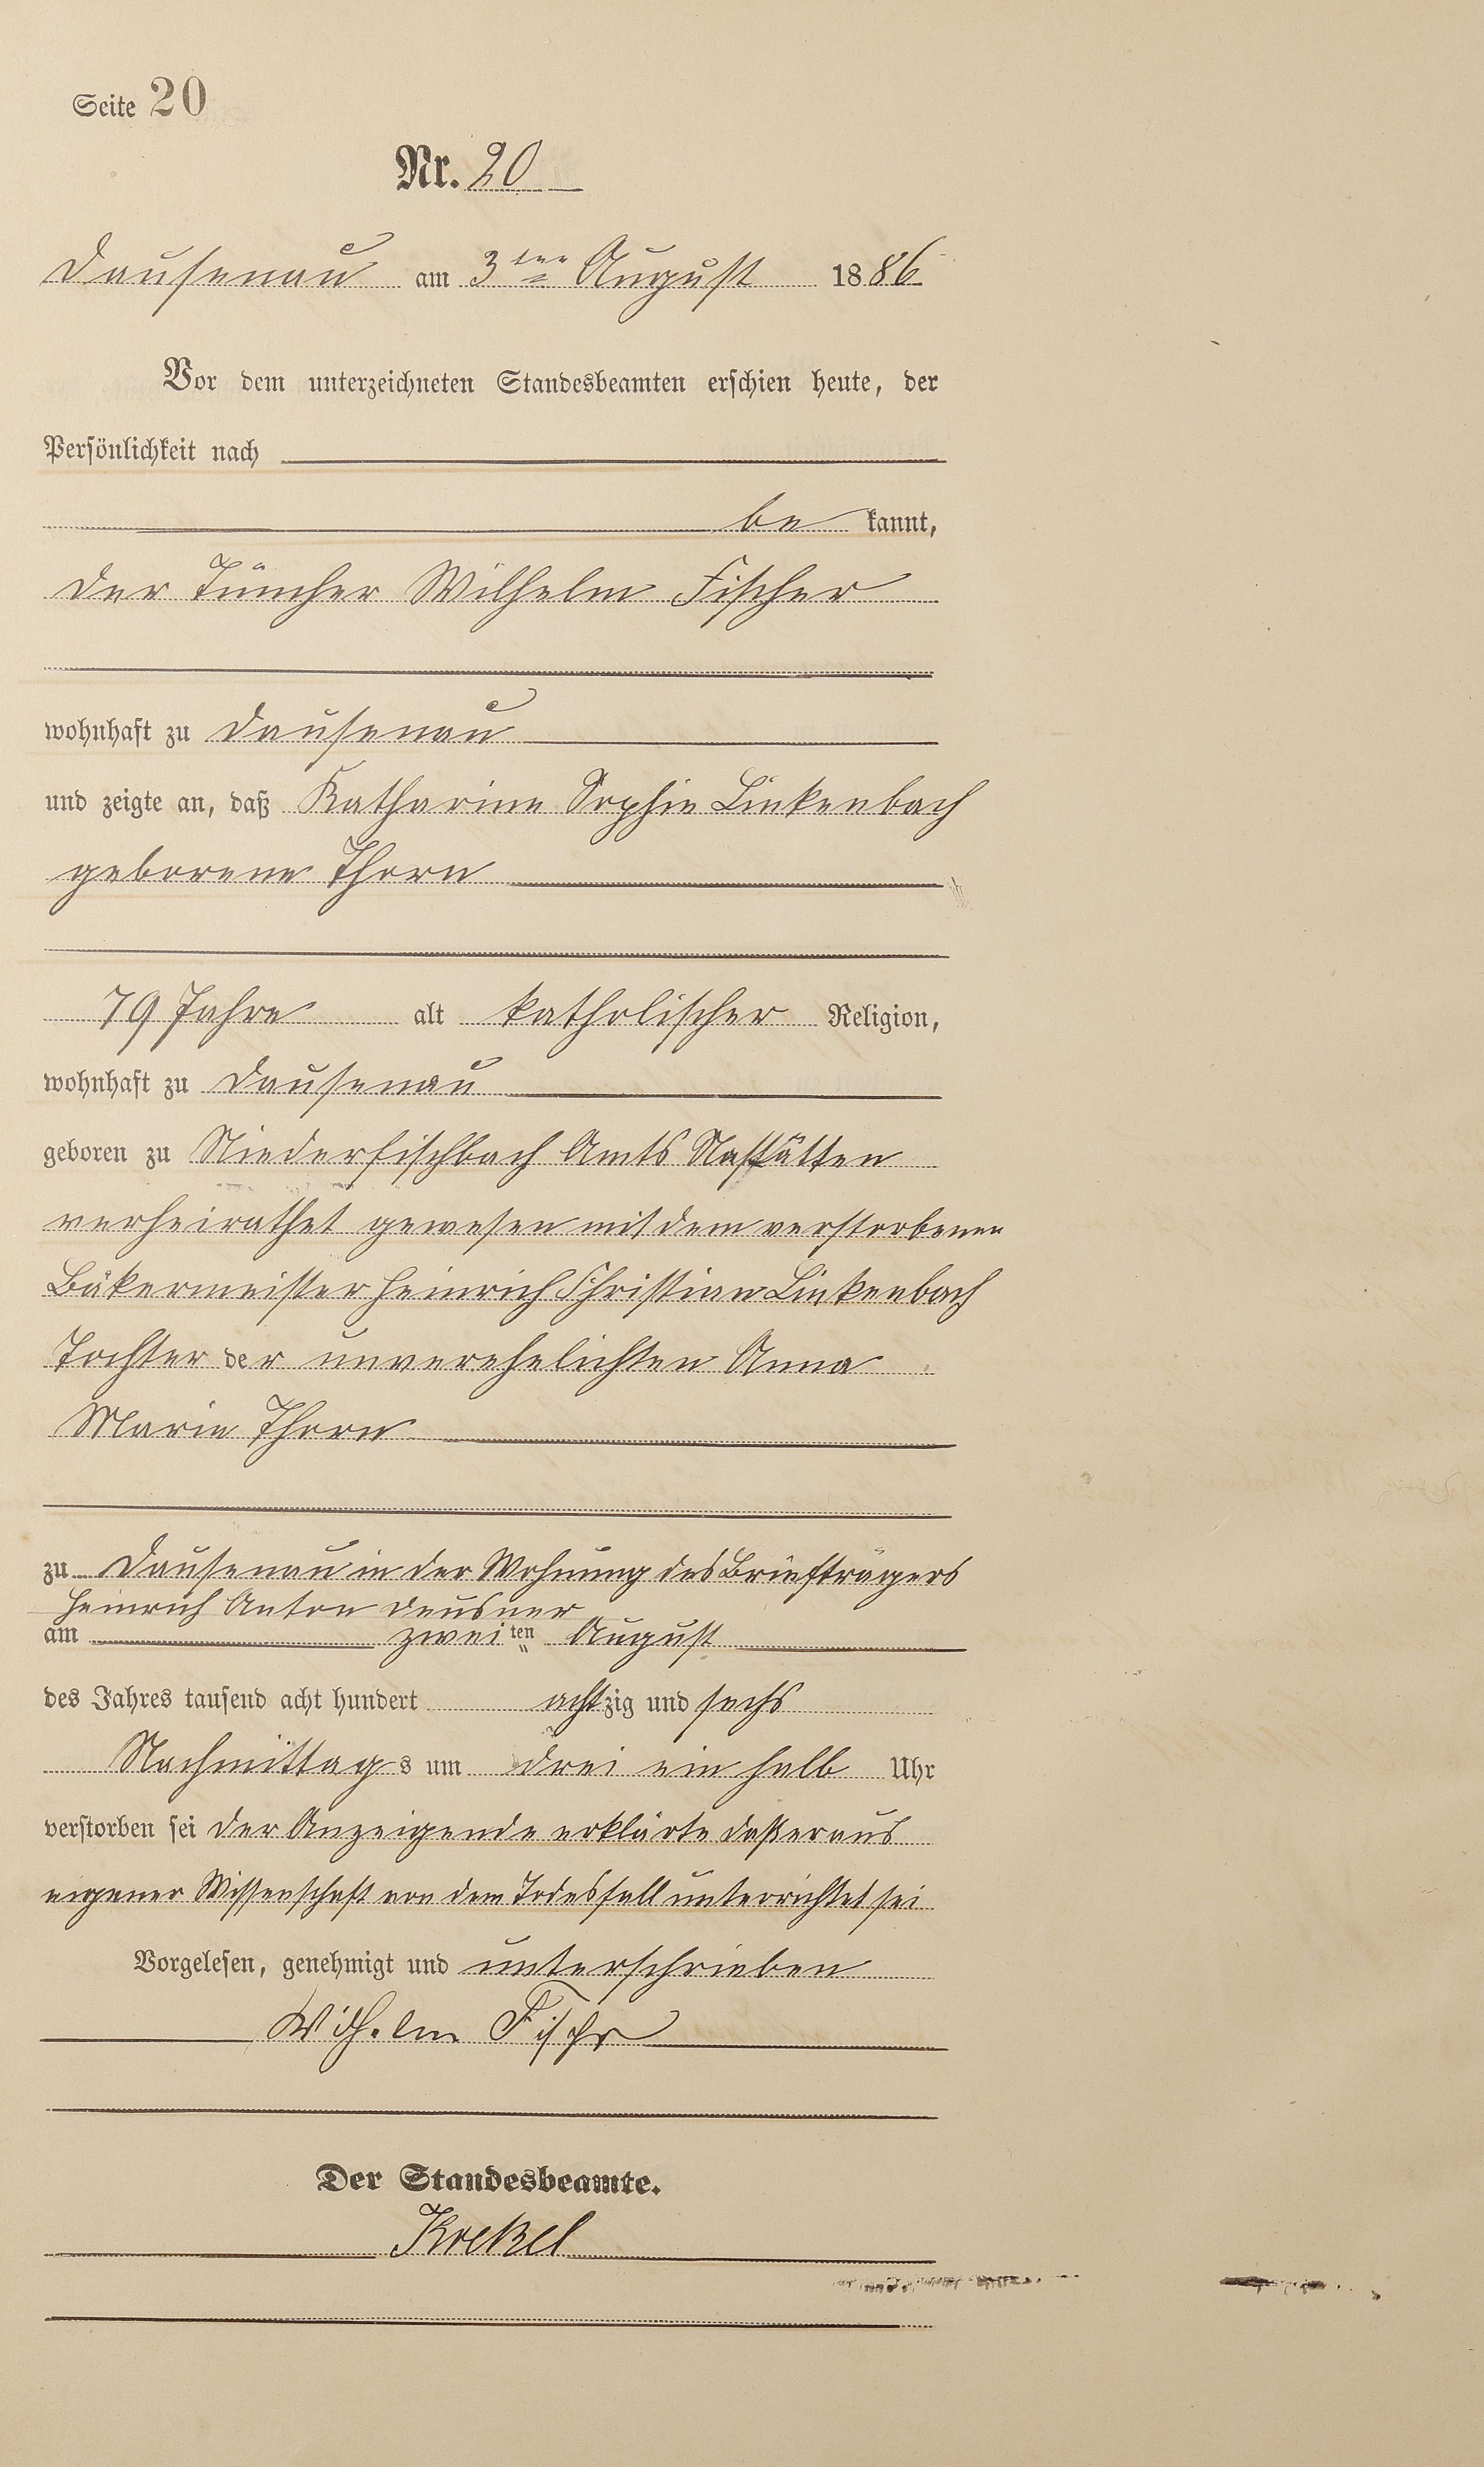 Seite 20
Nr. 20
Dausenau am 3ten August 1886
Vor dem unterzeichneten Standesbeamten erschien heute, der
Persönlichkeit nach
be kannt,
der Tüncher Wilhelm Fischer
wohnhaft zu Dausenau
und zeigte an, daß Katharine Sophie Linkenbach
geborene Thorn
79 Jahre alt katholischer Religion,
wohnhaft zu Dausenau
geboren zu Niederfischbach Amts Nastätten
verheirathet gewesen mit dem verstorbenen
Bäkermeister Heinrich Christian Linkenbach
Tochter der unverehelichten Anna
Marie Thorn
zu Dausenau in der Wohnung des Briefträgers
Heinrich Anton Deusner
am zweiten August
des Jahres tausend acht hundert achtzig und sechs
Nachmittags um drei ein halb Uhr
verstorben sei der Anzeigende erklärte daß er aus
eigener Wissenschaft von dem Todesfall unterrichtet sei
Vorgelesen, genehmigt und unterschrieben
Wilhelm Fischer
Der Standesbeamte.
Krekel